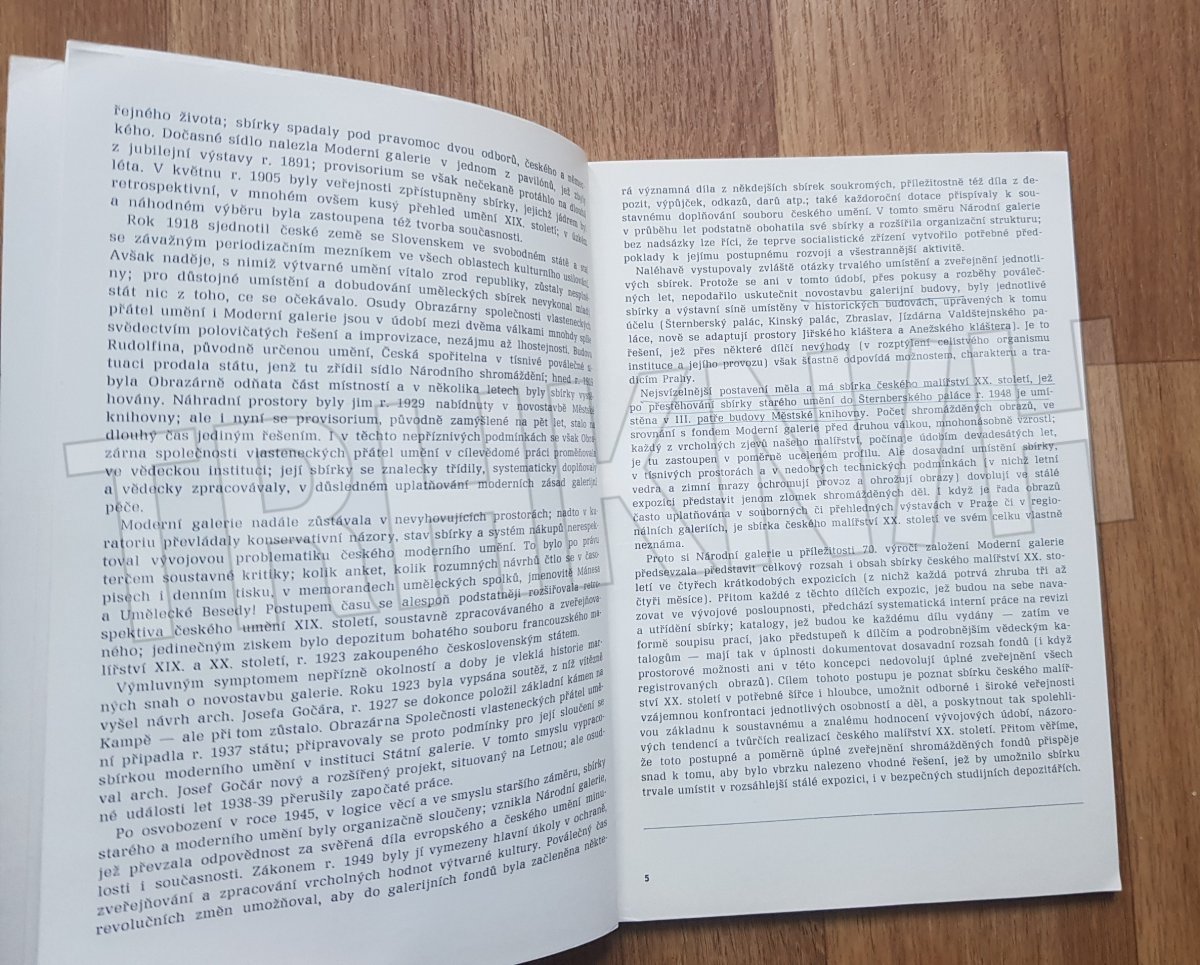 řejného života; sbírky spadaly pod pravomoc dvou odborů, českého a němec-
kého. Dočasné sídlo nalezla Moderní galerie v jednom z pavilónů, jež zbyly
z jubilejní výstavy r. 1891; provisorium se však nečekaně protáhlo na dlouhá
léta. V květnu r. 1905 byly veřejnosti zpřístupněny sbírky, jejichž jádrem byl
retrospektivní, v mnohém ovšem kusý přehled umění XIX. století; v úzkém
a náhodném výběru byla zastoupena též tvorba současnosti.
Rok 1918 sjednotil české země se Slovenskem ve svobodném státě a stal
se závažným periodizačním mezníkem ve všech oblastech kulturního usilování.
Avšak naděje, s nimiž výtvarné umění vítalo zrod republiky, zůstaly nesplně-
ny; pro důstojné umístění a dobudování uměleckých sbírek nevykonal mladý
stát nic z toho, co se očekávalo. Osudy Obrazárny společnosti vlasteneckých
přátel umění i Moderní galerie jsou v údobí mezi dvěma válkami mnohdy spíše
svědectvím polovičatých řešení a improvizace, nezájmu až lhostejnosti. Budovu
Rudolfina, původně určenou umění, Česká spořitelna v tísnivé poválečné si-
tuaci prodala státu, jenž tu zřídil sídlo Národního shromáždění; hned r.
byla Obrazárně odňata část místností a v několika letech byly sbírky vystě-
hovány. Náhradní prostory byly jim r. 1929 nabídnuty v novostavbě Městské
knihovny; ale i nyní se provisorium, původně zamýšlené na pět let, stalo na
dlouhý čas jediným řešením. I v těchto nepříznivých podmínkách se však Obra-
zárna společnosti vlasteneckých přátel umění v cílevědomé práci proměňovala
ve vědeckou instituci; její sbírky se znalecky třídily, systematicky doplňovaly
a vědecky zpracovávaly, v důsledném uplatňování moderních zásad galerijní
péče.
Moderní galerie nadále zůstávala v nevyhovujících prostorách; nadto v ku-
ratoriu převládaly konservativní názory, stav sbírky a systém nákupů nerespek-
toval vývojovou problematiku českého moderního umění. To bylo po právu
terčem soustavné kritiky; kolik anket, kolik rozumných návrhů čtlo se v časo-
pisech i denním tisku, v memorandech uměleckých spolků, jmenovitě Mánesa
a Umělecké Besedy! Postupem času se alespoň podstatněji rozšiřovala retro-
spektiva českého umění XIX. století, soustavně zpracovávaného a zveřejňova-
ného; jedinečným ziskem bylo depozitum bohatého souboru francouzského ma-
lířství XIX. a XX. století, r. 1923 zakoupeného československým státem.
Výmluvným symptomem nepřízně okolností a doby je vleklá historie mar-
ných snah o novostavbu galerie. Roku 1923 byla vypsána soutěž, z níž vítězně
vyšel návrh arch. Josefa Gočára, r. 1927 se dokonce položil základní kámen na
Kampě — ale při tom zůstalo. Obrazárna Společnosti vlasteneckých přátel umě-
ní připadla r. 1937 státu; připravovaly se proto podmínky pro její sloučení se
sbírkou moderního umění v instituci Státní galerie. V tomto smyslu vypraco-
val arch. Josef Gočár nový a rozšířený projekt, situovaný na Letnou; ale osud-
né události let 1938-39 přerušily započaté práce.
Po osvobození v roce 1945, v logice věcí a ve smyslu staršího záměru, sbírky
starého a moderního umění byly organizačně sloučeny; vznikla Národní galerie,
jež převzala odpovědnost za svěřená díla evropského a českého umění minu-
losti i současnosti. Zákonem r. 1949 byly jí vymezeny hlavní úkoly v ochraně,
zveřejňování a zpracování vrcholných hodnot výtvarné kultury. Poválečný čas
revolučních změn umožňoval, aby do galerijních fondů byla začleněna někte-
rá významná díla z někdejších sbírek soukromých, příležitostně též díla z de-
pozit, výpůjček, odkazů, darů atp.; také každoroční dotace přispívaly k sou-
stavnému doplňování souboru českého umění. V tomto směru Národní galerie
v průběhu let podstatně obohatila své sbírky a rozšířila organizační strukturu;
bez nadsázky lze říci, že teprve socialistické zřízení vytvořilo potřebné před-
poklady k jejímu postupnému rozvoji a všestrannější aktivitě.
Naléhavě vystupovaly zvláště otázky trvalého umístění a zveřejnění jednotli-
vých sbírek. Protože se ani v tomto údobí, přes pokusy a rozběhy pováleč-
ných let, nepodařilo uskutečnit novostavbu galerijní budovy, byly jednotlivé
sbírky a výstavní síně umístěny v historických budovách, upravených k tomu
účelu (Šternberský palác, Kinský palác, Zbraslav, Jízdárna Valdštejnského pa-
láce, nově se adaptují prostory Jiřského kláštera a Anežského kláštera). Je to
řešení, jež přes některé dílčí nevýhody (v rozptýlení celistvého organismu
instituce a jejího provozu) však šťastně odpovídá možnostem, charakteru a tra-
dicím Prahy.
Nejsvízelnější postavení měla a má sbírka českého malířství XX. století, jež
po přestěhování sbírky starého umění do Šternberského paláce r. 1948 je umí-
stěna v III. patře budovy Městské knihovny. Počet shromážděných obrazů, ve
srovnání s fondem Moderní galerie před druhou válkou, mnohonásobně vzrostl;
každý z vrcholných zjevů našeho malířství, počínaje údobím devadesátých let,
je tu zastoupen v poměrně uceleném profilu. Ale dosavadní umístění sbírky,
v tísnivých prostorách a v nedobrých technických podmínkách (v nichž letní
vedra a zimní mrazy ochromují provoz a ohrožují obrazy) dovolují ve stálé
expozici představit jenom zlomek shromážděných děl. I když je řada obrazů
často uplatňována v souborných či přehledných výstavách v Praze či v regio-
nálních galeriích, je sbírka českého malířství XX. století ve svém celku vlastně
neznáma.
Proto si Národní galerie u příležitosti 70. výročí založení Moderní galerie
předsevzala představit celkový rozsah i obsah sbírky českého malířství XX. sto-
letí ve čtyřech krátkodobých expozicích (z nichž každá potrvá zhruba tři až
čtyři měsíce). Přitom každé z těchto dílčích expozic, jež budou na sebe nava-
zovat ve vývojové posloupnosti, předchází systematická interní práce na revizi
a utřídění sbírky; katalogy, jež budou ke každému dílu vydány — zatím ve
formě soupisu prací, jako předstupeň k dílčím a podrobnějším vědeckým ka-
talogům — mají tak v úplnosti dokumentovat dosavadní rozsah fondů (i když
prostorové možnosti ani v této koncepci nedovolují úplné zveřejnění všech
registrovaných obrazů). Cílem tohoto postupu je poznat sbírku českého malíř-
ství XX. století v potřebné šířce i hloubce, umožnit odborné i široké veřejnosti
vzájemnou konfrontaci jednotlivých osobností a děl, a poskytnout tak spolehli-
vou základnu k soustavnému a znalému hodnocení vývojových údobí, názoro-
vých tendencí a tvůrčích realizací českého malířství XX. století. Přitom věříme,
že toto postupné a poměrně úplné zveřejnění shromážděných fondů přispěje
snad k tomu, aby bylo vbrzku nalezeno vhodné řešení, jež by umožnilo sbírku
trvale umístit v rozsáhlejší stálé expozici, i v bezpečných studijních depozitářích.
5